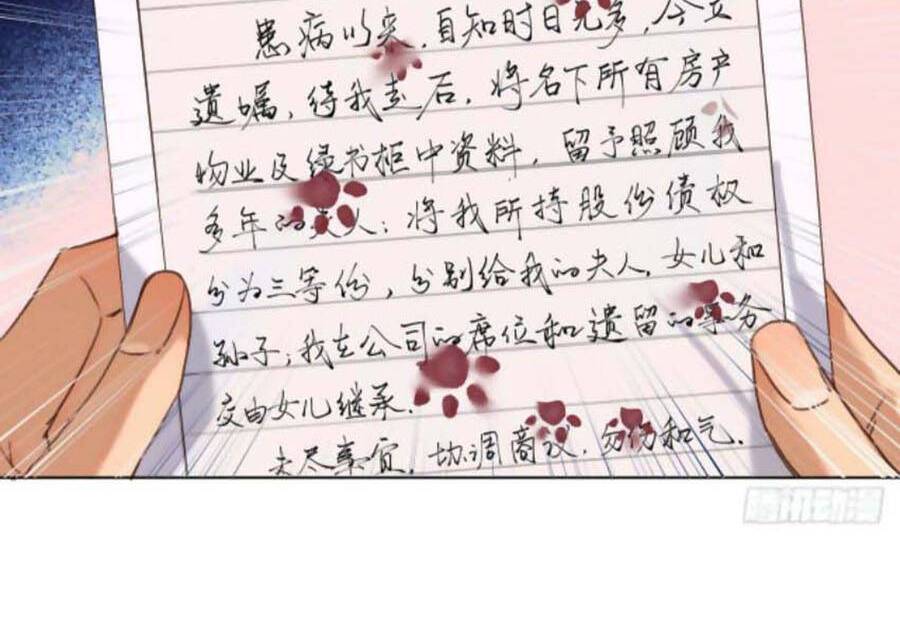 患病以来,自知时日无多,今立
遗嘱,待我走后,将名下所有房产
物业及绿书柜中资料,留予照顾我
多年的夫人;将我所持股份债权
分为三等份,分别给我的夫人,女儿和
孙子;我在公司的席位和遗留的事务
交由女儿继承.
未尽事宜,协调商议,勿伤和气.
腾讯动漫